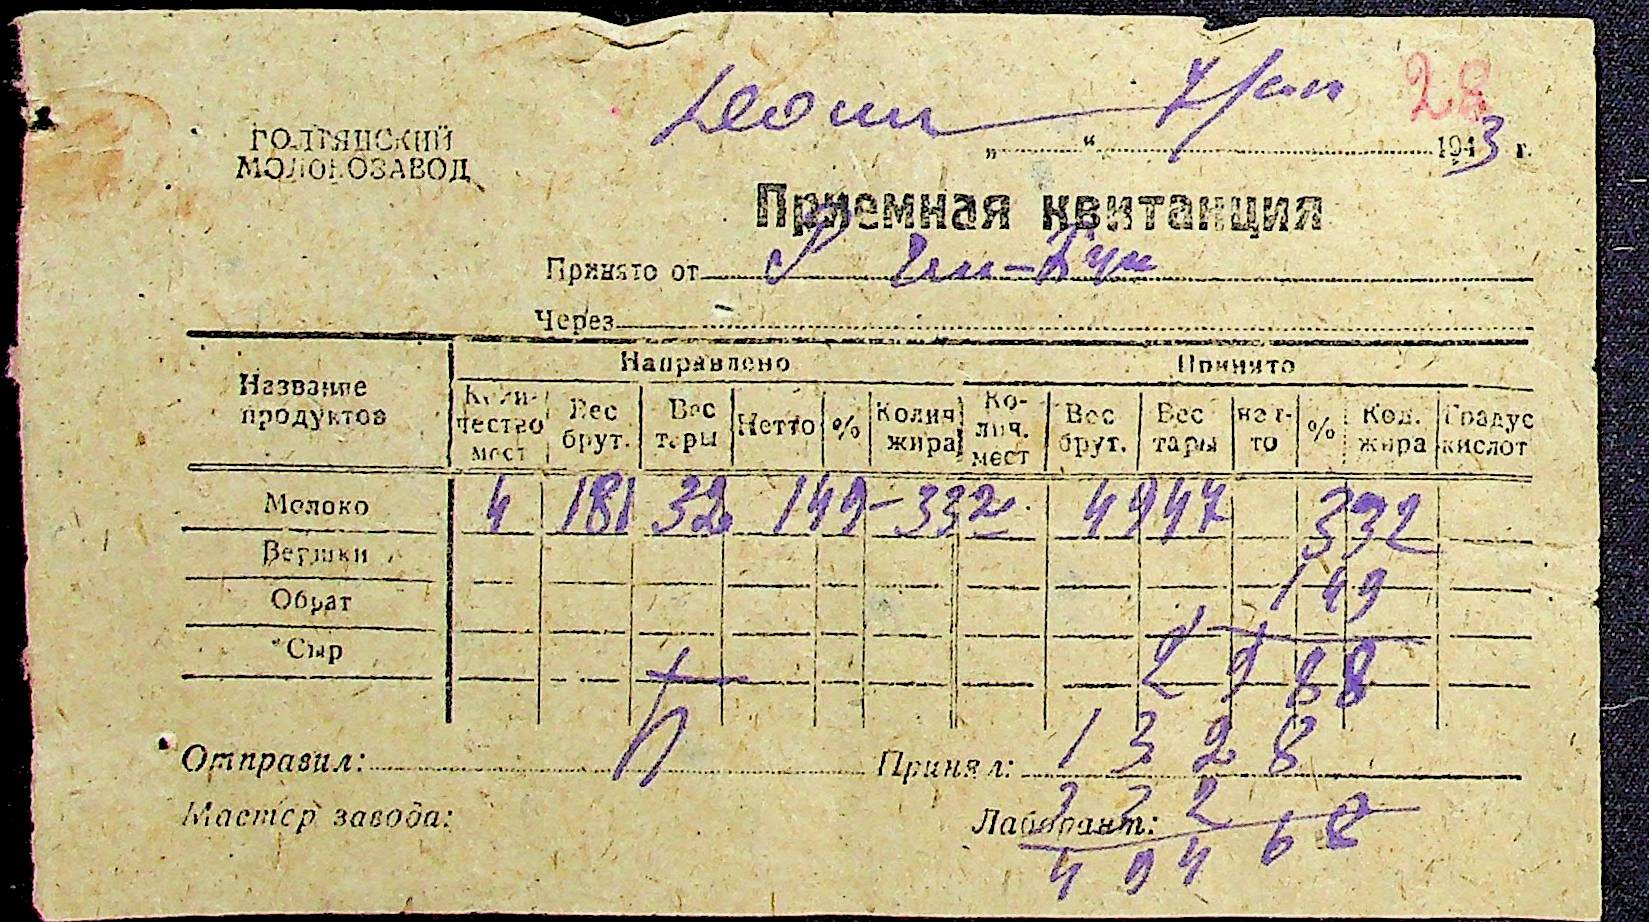 28
ГОЛТЯНСКИЙ
МОЛОКОЗАВОД
„ “ 1943 г.
Приемная квитанция
Принято от
Через
Название продуктов Направлено Принято
Количество мест Вес брут. Вес тары Нетто % Колич жира Колич. мест Вес брут. Вес тары нетто % Кол. жира Градус кислот
Молоко 4 181 32 149 - 332 4947 332
Вершки
Обрат 149
Сыр 2988
Отправил: Принял: 1328
Мастер завода: Лаборант: 332
49468